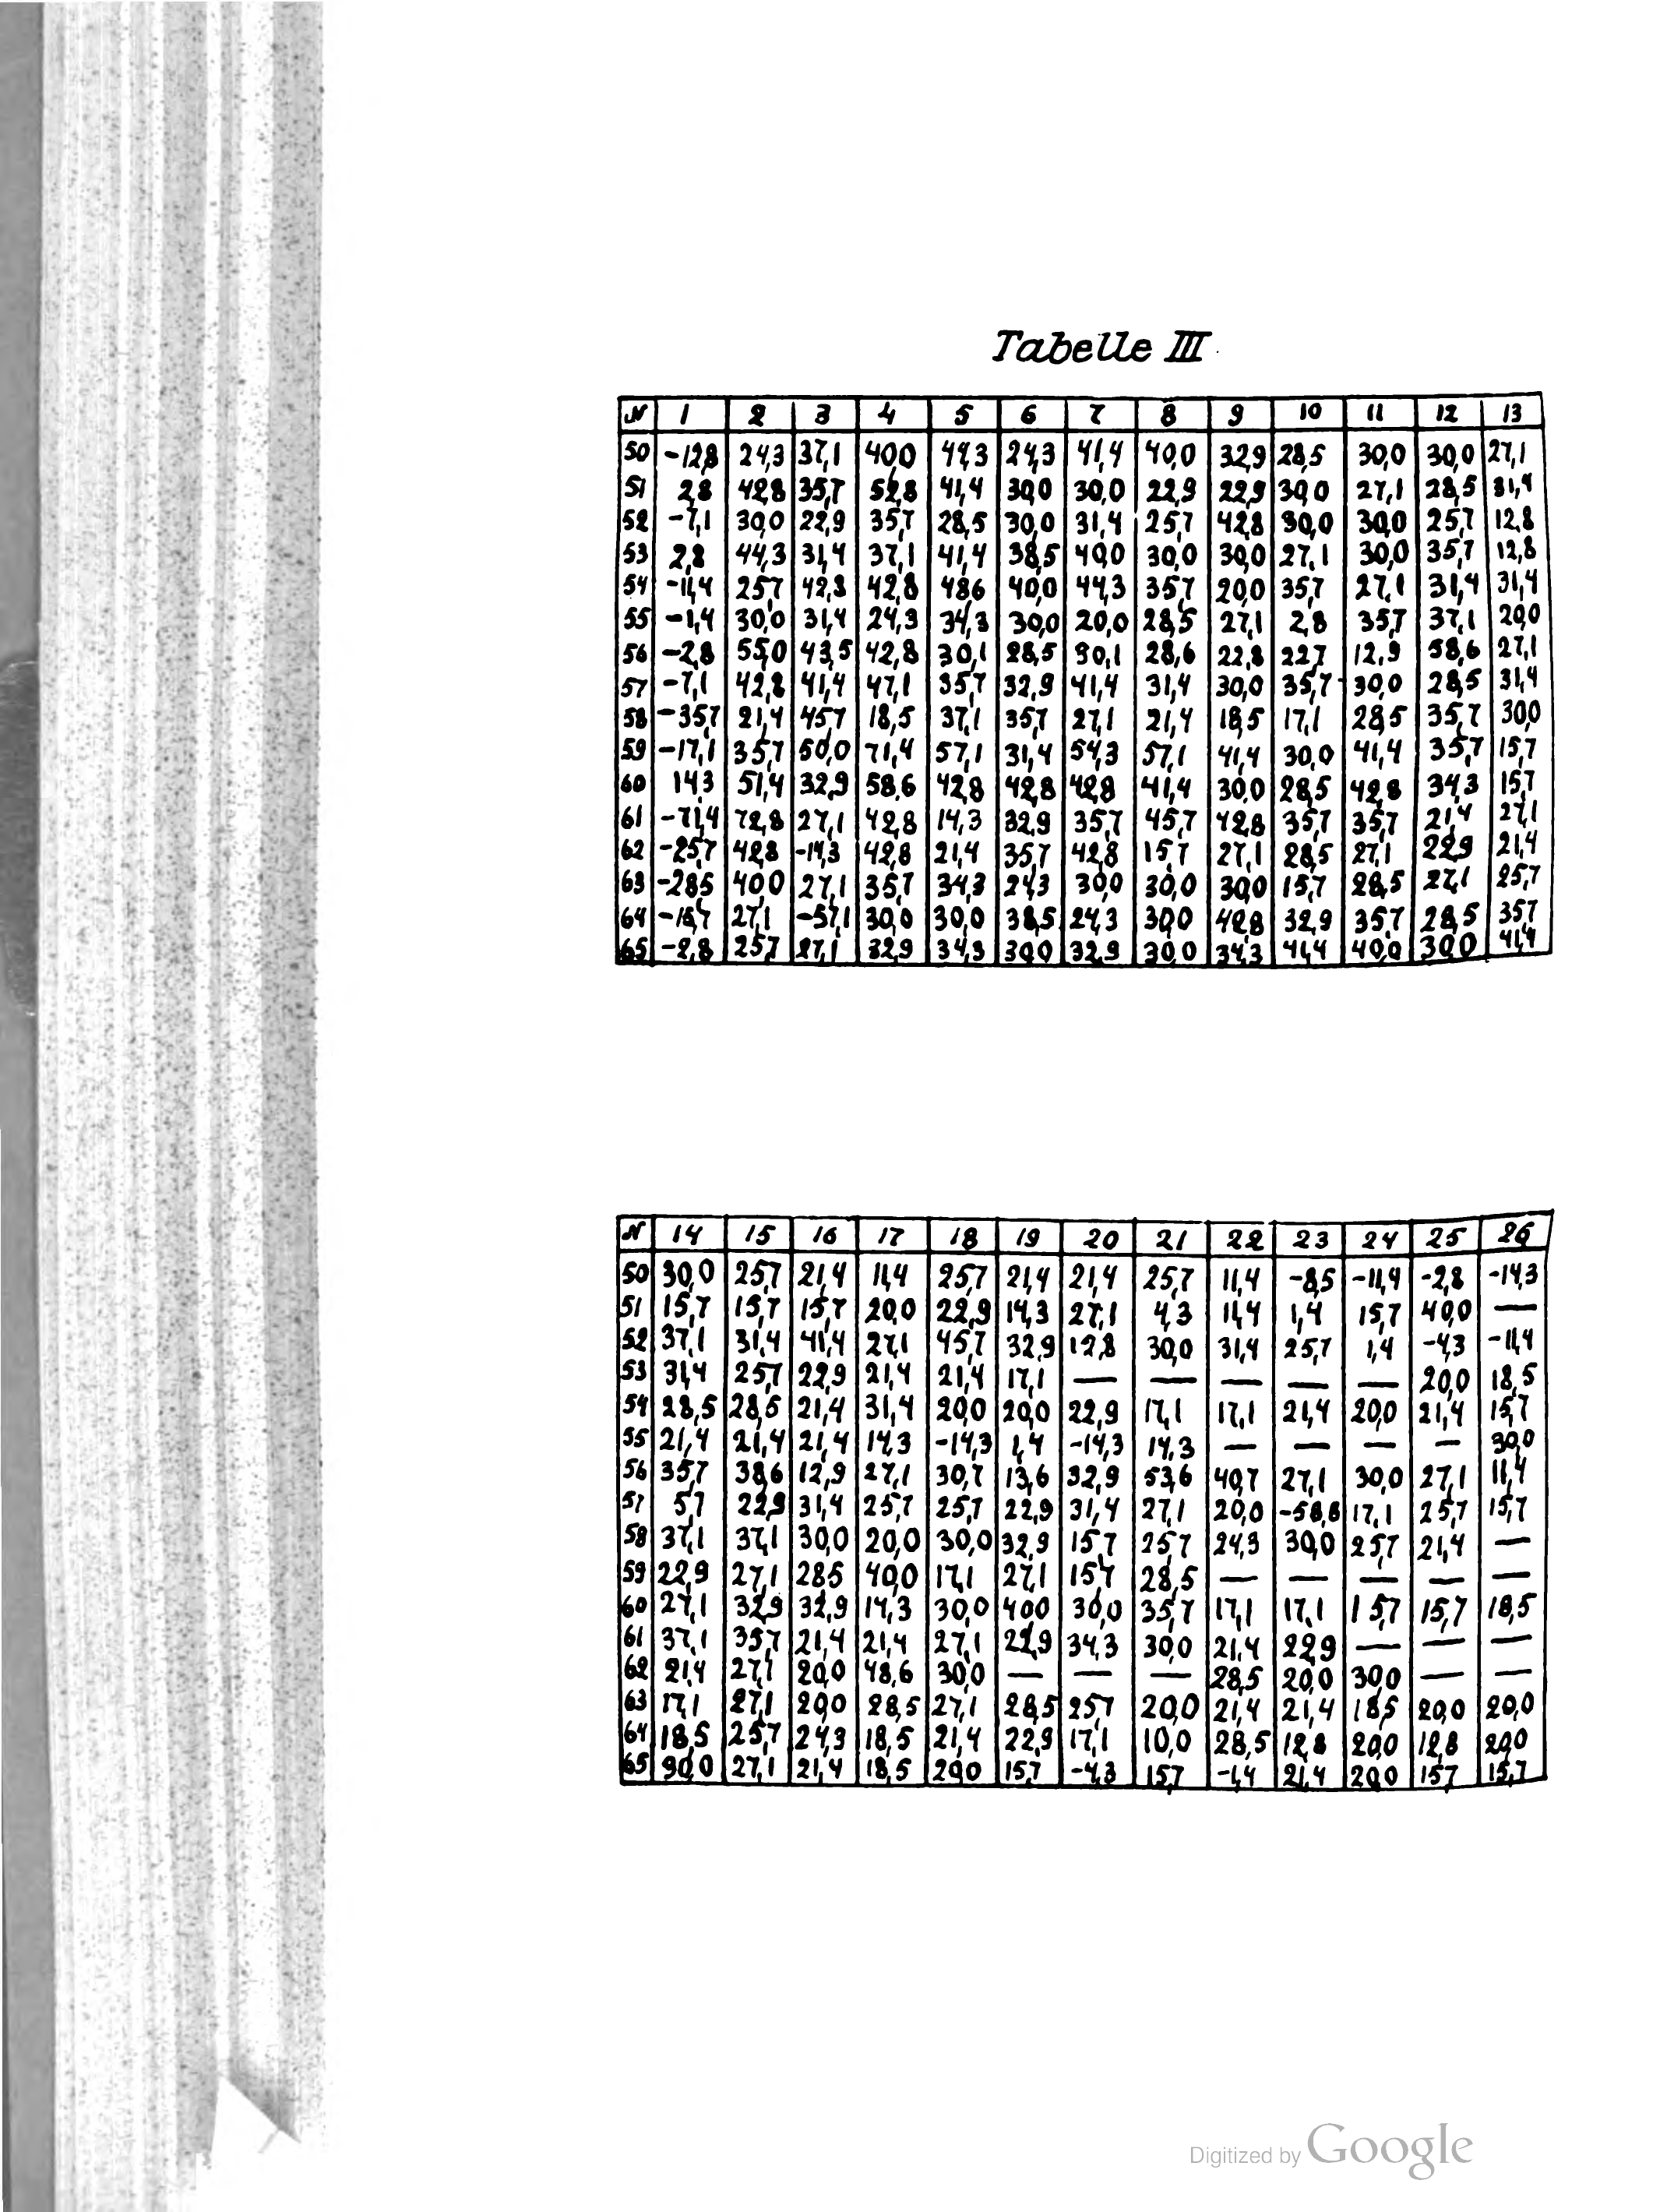 Tabelle III
N 1 2 3 4 5 6 7 8 9 10 11 12 13
50 -12,8 24,3 37,1 40,0 44,3 24,3 41,4 40,0 32,9 28,5 30,0 30,0 27,1
51 2,8 42,8 35,7 52,8 41,4 30,0 30,0 22,9 22,9 30,0 27,1 28,5 31,4
52 -7,1 30,0 22,9 35,7 28,5 30,0 31,4 25,7 42,8 30,0 30,0 25,7 12,8
53 2,8 44,3 31,4 37,1 41,4 38,5 40,0 30,0 30,0 27,1 30,0 35,7 12,8
54 -11,4 25,7 42,8 42,8 48,6 40,0 44,3 35,7 20,0 35,7 27,1 31,4 31,4
55 -1,4 30,0 31,4 24,3 34,3 30,0 20,0 28,5 27,1 2,8 35,7 37,1 20,0
56 -2,8 55,0 43,5 42,8 30,1 28,5 30,1 28,6 22,8 22,7 12,9 58,6 27,1
57 -7,1 42,8 41,4 47,1 35,7 32,9 41,4 31,4 30,0 35,7 30,0 28,5 31,4
58 -35,7 21,4 45,7 18,5 37,1 35,7 27,1 21,4 18,5 17,1 28,5 35,7 30,0
59 -17,1 35,7 50,0 71,4 57,1 31,4 54,3 57,1 41,4 30,0 41,4 35,7 15,7
60 14,3 51,4 32,9 58,6 42,8 42,8 42,8 41,4 30,0 28,5 42,8 34,3 15,7
61 -71,4 72,8 27,1 42,8 14,3 32,9 35,7 45,7 42,8 35,7 35,7 21,4 27,1
62 -25,7 42,8 -14,3 42,8 21,4 35,7 42,8 15,7 27,1 28,5 27,1 22,9 21,4
63 -28,5 40,0 27,1 35,7 34,3 24,3 30,0 30,0 30,0 15,7 28,5 27,1 25,7
64 -15,7 27,1 -57,1 30,0 30,0 38,5 24,3 30,0 42,8 32,9 35,7 28,5 35,7
65 -2,8 25,7 27,1 32,9 34,3 30,0 32,9 30,0 34,3 41,4 40,0 30,0 41,4
N 14 15 16 17 18 19 20 21 22 23 24 25 26
50 30,0 25,7 21,4 11,4 25,7 21,4 21,4 25,7 11,4 -8,5 -11,4 -2,8 -14,3
51 15,7 15,7 15,7 20,0 22,9 14,3 27,1 4,3 11,4 1,4 15,7 40,0 —
52 37,1 31,4 41,4 27,1 45,7 32,9 12,8 30,0 31,4 25,7 1,4 -4,3 -11,4
53 31,4 25,7 22,9 21,4 21,4 17,1 — — — — — 20,0 18,5
54 28,5 28,5 21,4 31,4 20,0 20,0 22,9 17,1 17,1 21,4 20,0 21,4 15,7
55 21,4 21,4 21,4 14,3 -14,3 1,4 -14,3 14,3 — — — — 30,0
56 35,7 38,6 12,9 27,1 30,7 13,6 32,9 53,6 40,7 27,1 30,0 27,1 11,4
57 5,7 22,9 31,4 25,7 25,7 22,9 31,4 27,1 20,0 -58,6 17,1 25,7 15,7
58 37,1 37,1 30,0 20,0 30,0 32,9 15,7 25,7 24,3 30,0 25,7 21,4 —
59 22,9 27,1 28,5 40,0 17,1 27,1 15,7 28,5 — — — — —
60 27,1 32,9 32,9 14,3 30,0 40,0 30,0 35,7 17,1 17,1 15,7 15,7 18,5
61 37,1 35,7 21,4 21,4 27,1 22,9 34,3 30,0 21,4 22,9 — — —
62 21,4 27,1 20,0 48,6 30,0 — — — 28,5 20,0 30,0 — —
63 17,1 27,1 20,0 28,5 27,1 28,5 25,7 20,0 21,4 21,4 18,5 20,0 20,0
64 18,5 25,7 24,3 18,5 21,4 22,9 17,1 10,0 28,5 12,8 20,0 12,8 20,0
65 30,0 27,1 21,4 18,5 20,0 15,7 -4,3 15,7 -1,4 21,4 20,0 15,7 15,7
Digitized by Google